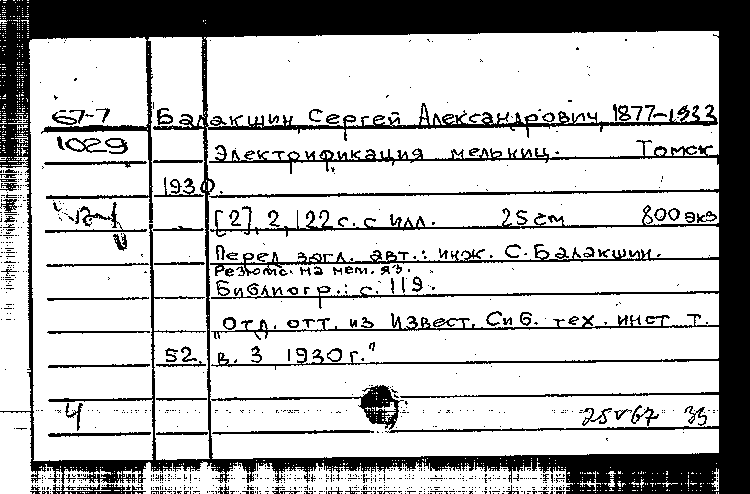 67-7 Балакшин, Сергей Александрович, 1877-1933
1029 Электрификация мельниц. Томск,
1930.
[2], 2, 122 с. с илл. 25 см 800 экз
Перед загл. авт.: инж. С. Балакшин.
Резюме на нем. яз.
Библиогр.: с. 119.
"Отд. отт. из Извест. Сиб. тех. инст т.
52. в. 3 1930 г."
4 25 V 67 33